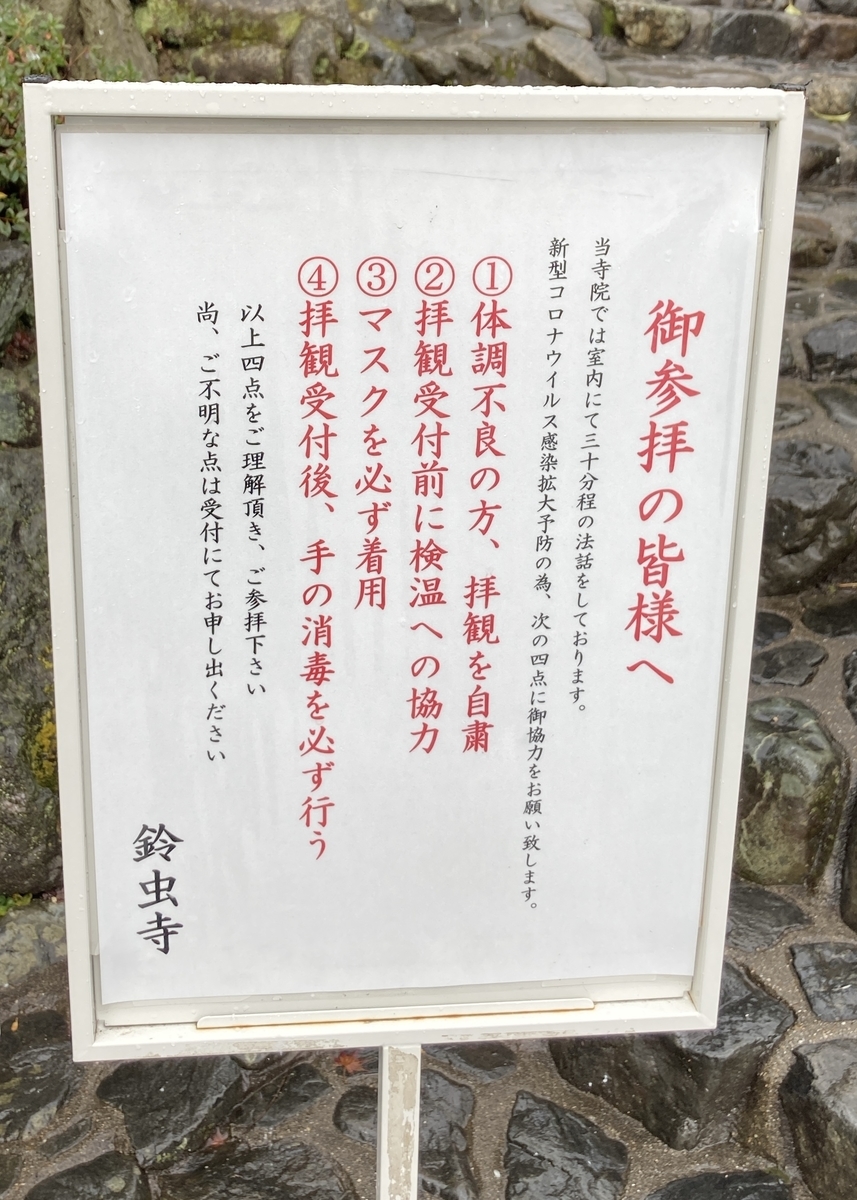 御参拝の皆様へ
当寺院では室内にて三十分程の法話をしております。
新型コロナウイルス感染拡大予防の為、次の四点に御協力をお願い致します。
①体調不良の方、拝観を自粛
②拝観受付前に検温への協力
③マスクを必ず着用
④拝観受付後、手の消毒を必ず行う
以上四点をご理解頂き、ご参拝下さい
尚、ご不明な点は受付にてお申し出ください
鈴虫寺